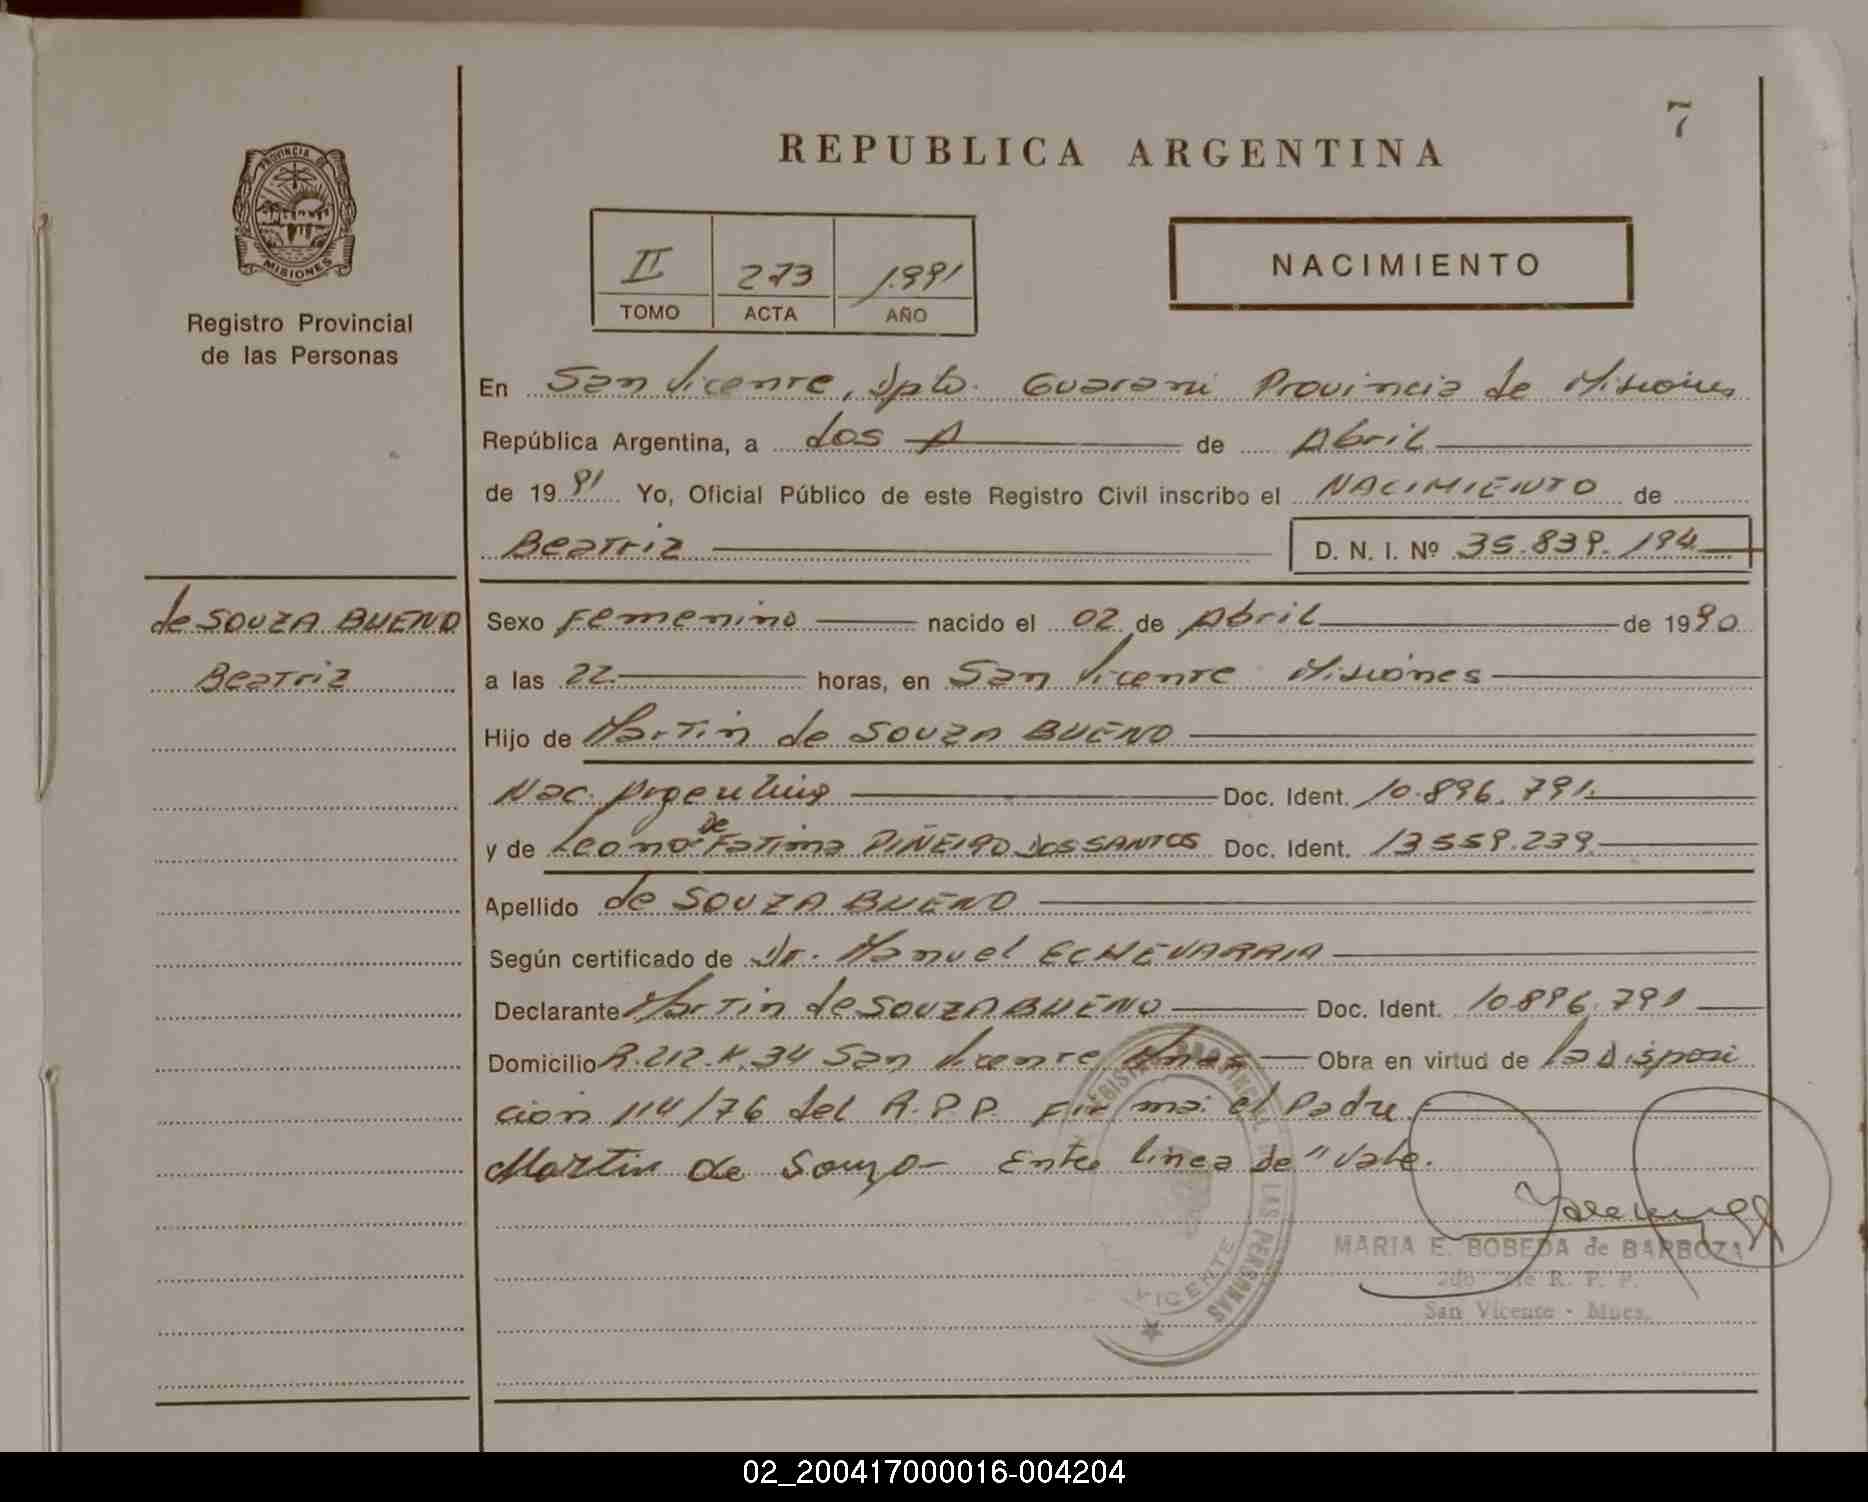 7
REPUBLICA ARGENTINA
PROVINCIA DE
MISIONES
Registro Provincial
de las Personas
II 273 1.991
TOMO ACTA AÑO
NACIMIENTO
En San Vicente, Dpto. Guarani Provincia de Misiones
República Argentina, a dos de Abril
de 1991 Yo, Oficial Público de este Registro Civil inscribo el NACIMIENTO de
Beatriz D. N. I. Nº 35.839.194
de SOUZA BUENO
Beatriz
Sexo Femenino nacido el 02 de Abril de 1990
a las 22 horas, en San Vicente Misiones
Hijo de Martin de SOUZA BUENO
Nac. Argentina Doc. Ident. 10.896.791
de
y de Fatima PIÑEIRO DOS SANTOS Doc. Ident. 13559.239
Apellido de SOUZA BUENO
Según certificado de Dr. Manuel ECHEVARRIA
Declarante Martin de SOUZA BUENO Doc. Ident. 10.896.791
Domicilio R.212.K.34 San Vicente Mnes Obra en virtud de la Disposi
cion 114/76 del R.P.P. Firma: el Padre
Martin de Souza Entre linea de" Vale.
REGISTRO PROVINCIAL DE LAS PERSONAS
VICENTE
MARIA E. BOBEDA de BARBOZA
R. P. P.
San Vicente - Mnes.
02_200417000016-004204